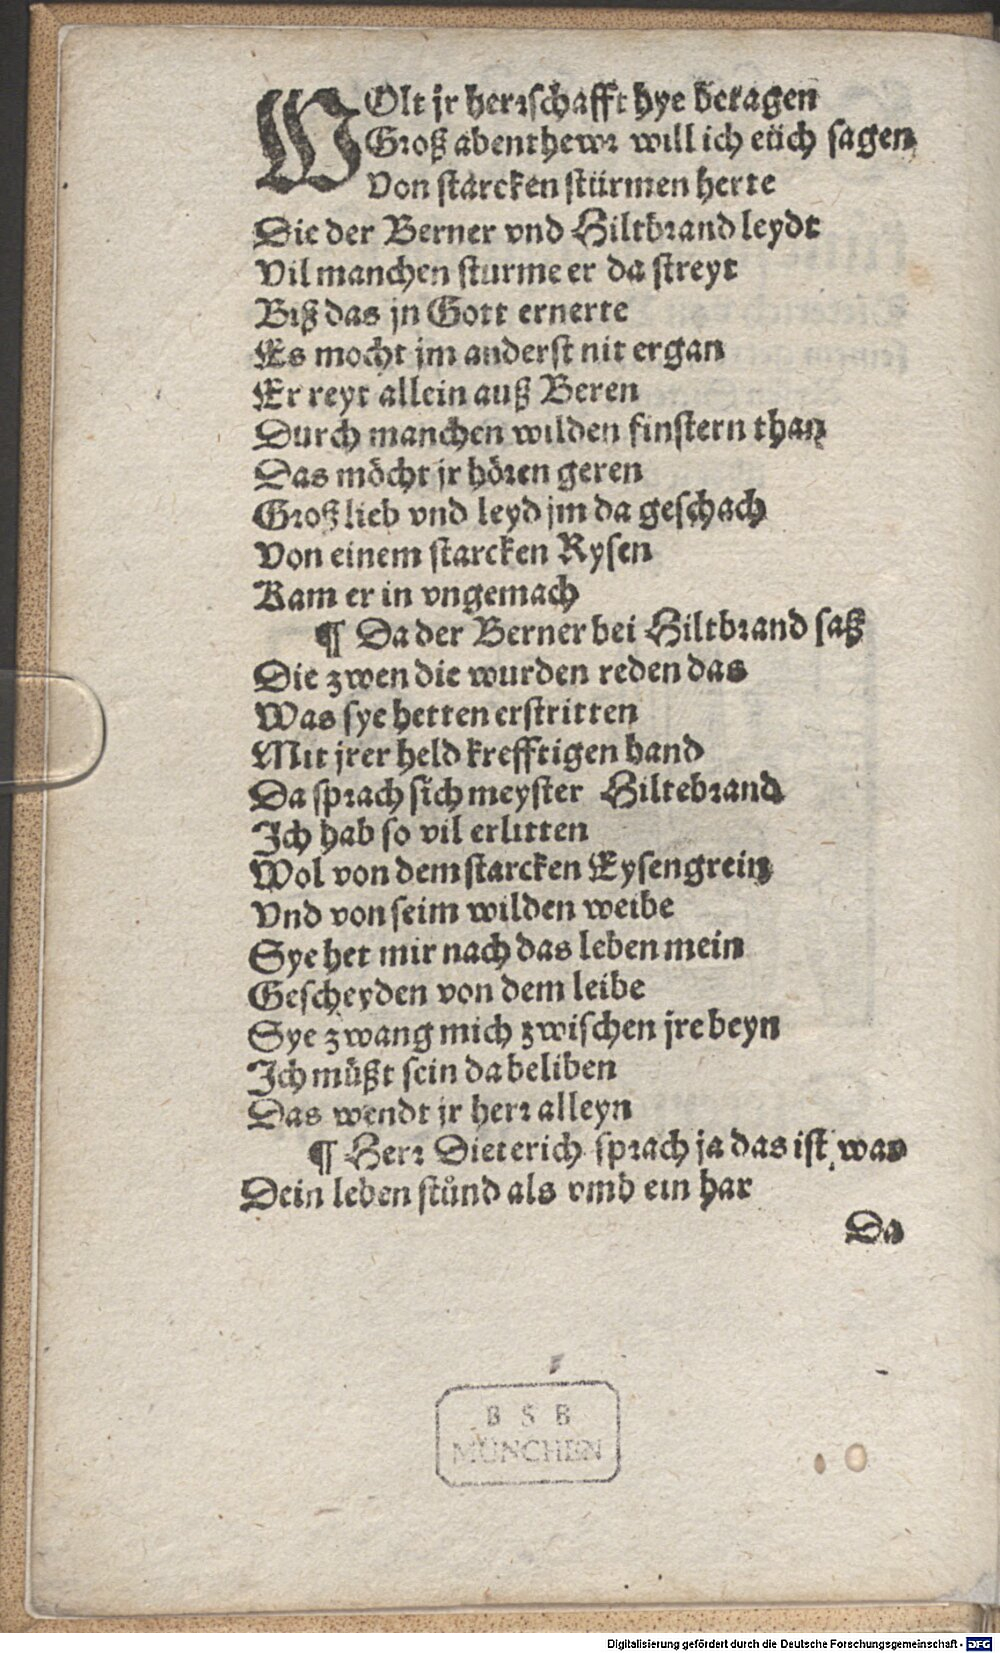 WOlt jr herrschafft hye betagen
Groß abenthewr will ich eüch sagen
Von starcken stürmen herte
Die der Berner vnd Hiltbrand leydt
Vil manchen sturme er da streyt
Biß das jn Gott ernerte
Es mocht jm anderst nit ergan
Er reyt allein auß Beren
Durch manchen wilden finstern than
Das möcht jr hören geren
Groß lieb vnd leyd jm da geschach
Von einem starcken Rysen
Kam er in vngemach
¶ Da der Berner bei Hiltbrand saß
Die zwen die wurden reden das
Was sye hetten erstritten
Mit jrer held krefftigen hand
Da sprach sich meyster Hiltebrand
Ich hab so vil erlitten
Wol von dem starcken Eysengrein
Vnd von seim wilden weibe
Sye het mir nach das leben mein
Gescheyden von dem leibe
Sye zwang mich zwischen jre beyn
Ich müßt sein da beliben
Das wendt jr herr alleyn
¶ Herr Dieterich sprach ja das ist war
Dein leben stůnd als vmb ein har
Da
B S B
MÜNCHEN
Digitalisierung gefördert durch die Deutsche Forschungsgemeinschaft - DFG